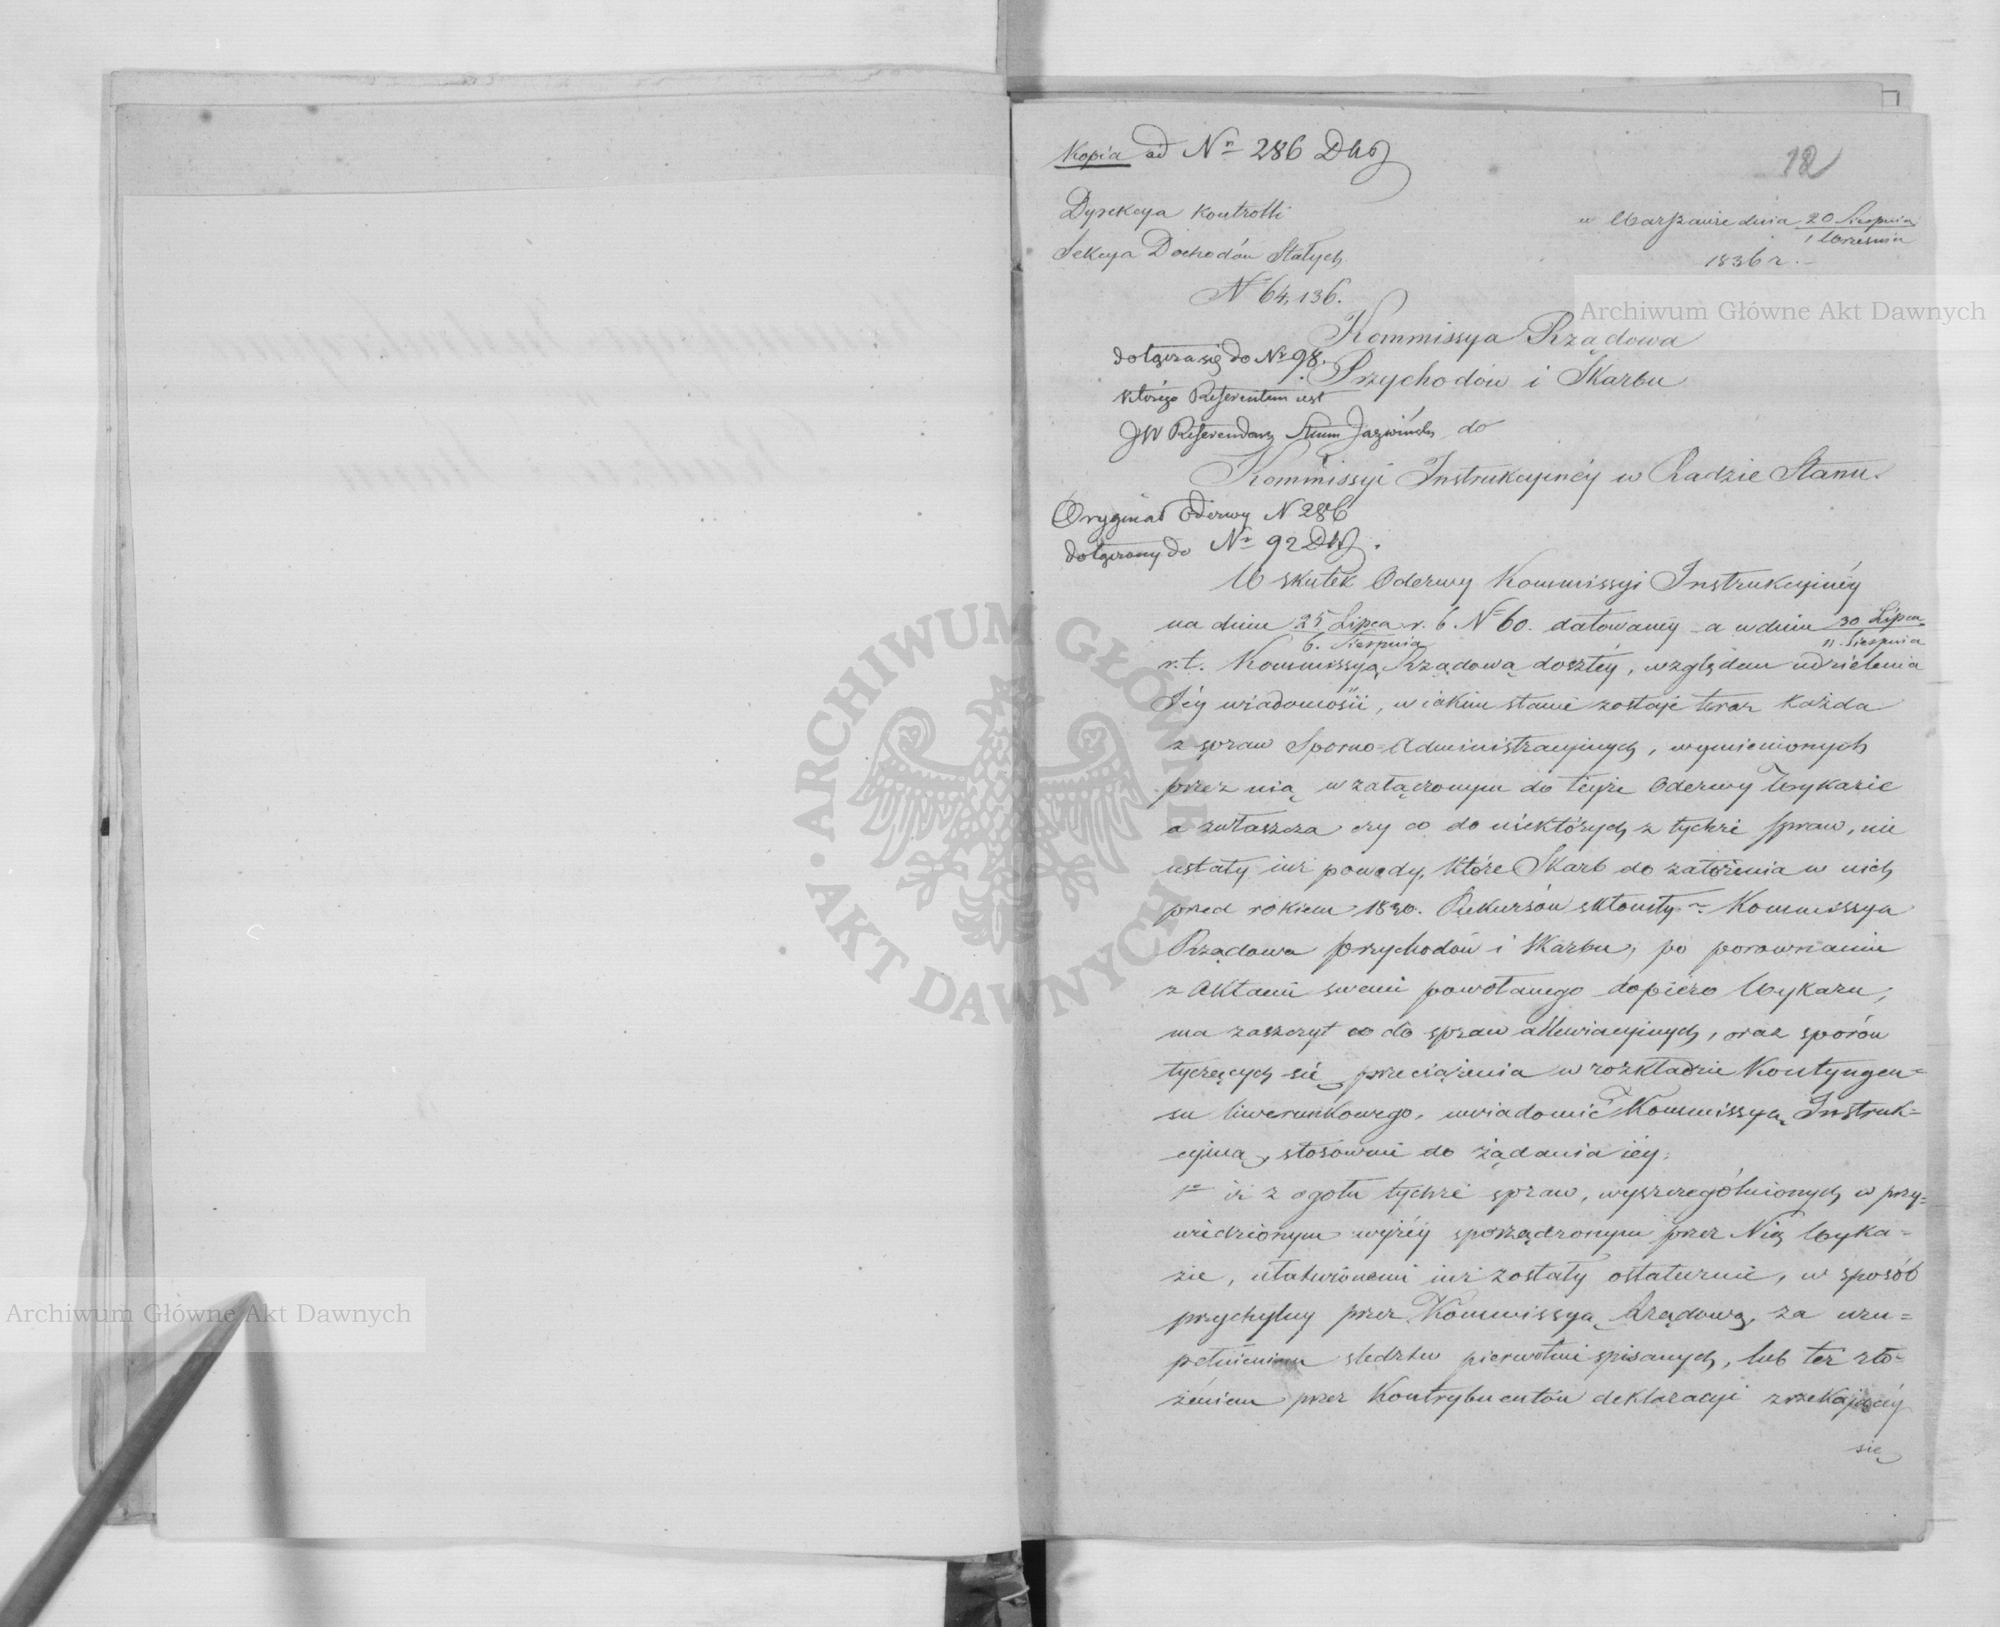 Kopia ad Nr 286 Dhs
12
Dyrekcya Kontrolli
w Warszawie dnia 20 Sierpnia
1 Września
Sekcya Dochodów Stałych
1836 r.
N 64,136.
Archiwum Główne Akt Dawnych
Kommissya Rządowa
dołącza się do Nr 98.
Przychodów i Skarbu
którego Referentem iest
JW Referendarz Jaźwiński do
Kommissyi Instrukcyinéy w Radzie Stanu.
Oryginał Odezwy N 286
dołączony do Nr 92
W skutek Odezwy Kommissyi Instrukcyinéy
na dniu 25 Lipca r. b. N 60. datowanéy a w dniu 30 Lipca
6. Sierpnia 11. Sierpnia
r. t. Kommissyą Rządową doszłéy, względem udzielenia
Jéy wiadomości, w iakim stanie zostaje teraz każda
z spraw Sporno=Administracyinych, wymienionych
przez nią w załączonym do teyże Odezwy Wykazie
a zwłaszcza czy co do niektórych z tychże spraw, nie
ustały iuż powody, które Skarb do założenia w nich
przed rokiem 1830. Rekursów skłoniły – Kommissya
Rządowa przychodów i Skarbu, po porównaniu
z Aktami swemi powołanego dopiéro Wykazu,
ma zaszczyt co do spraw allewiacyinych, oraz sporów
tyczących się przeciążenia w rozkładzie Kontyngen=
su liwerunkowego, uwiadomić Kommissyą Instruk=
cyiną, stósownie do żądania iéy:
1o iż z ogółu tychże spraw, wyszczególnionych w przy=
wiedzionym wyżéy sporządzonym przez Nią Wyka=
zie, ułatwionemi iuż zostały ostatecznie, w sposób
przychylny przez Kommissyą Rządową, za uzu=
pełnieniem śledztw pierwotnie spisanych, lub też zło=
żeniem przez Kontrybuentów deklaracyi zrzekaiącéy
się
ARCHIWUM GŁÓWNE AKT DAWNYCH
Archiwum Główne Akt Dawnych